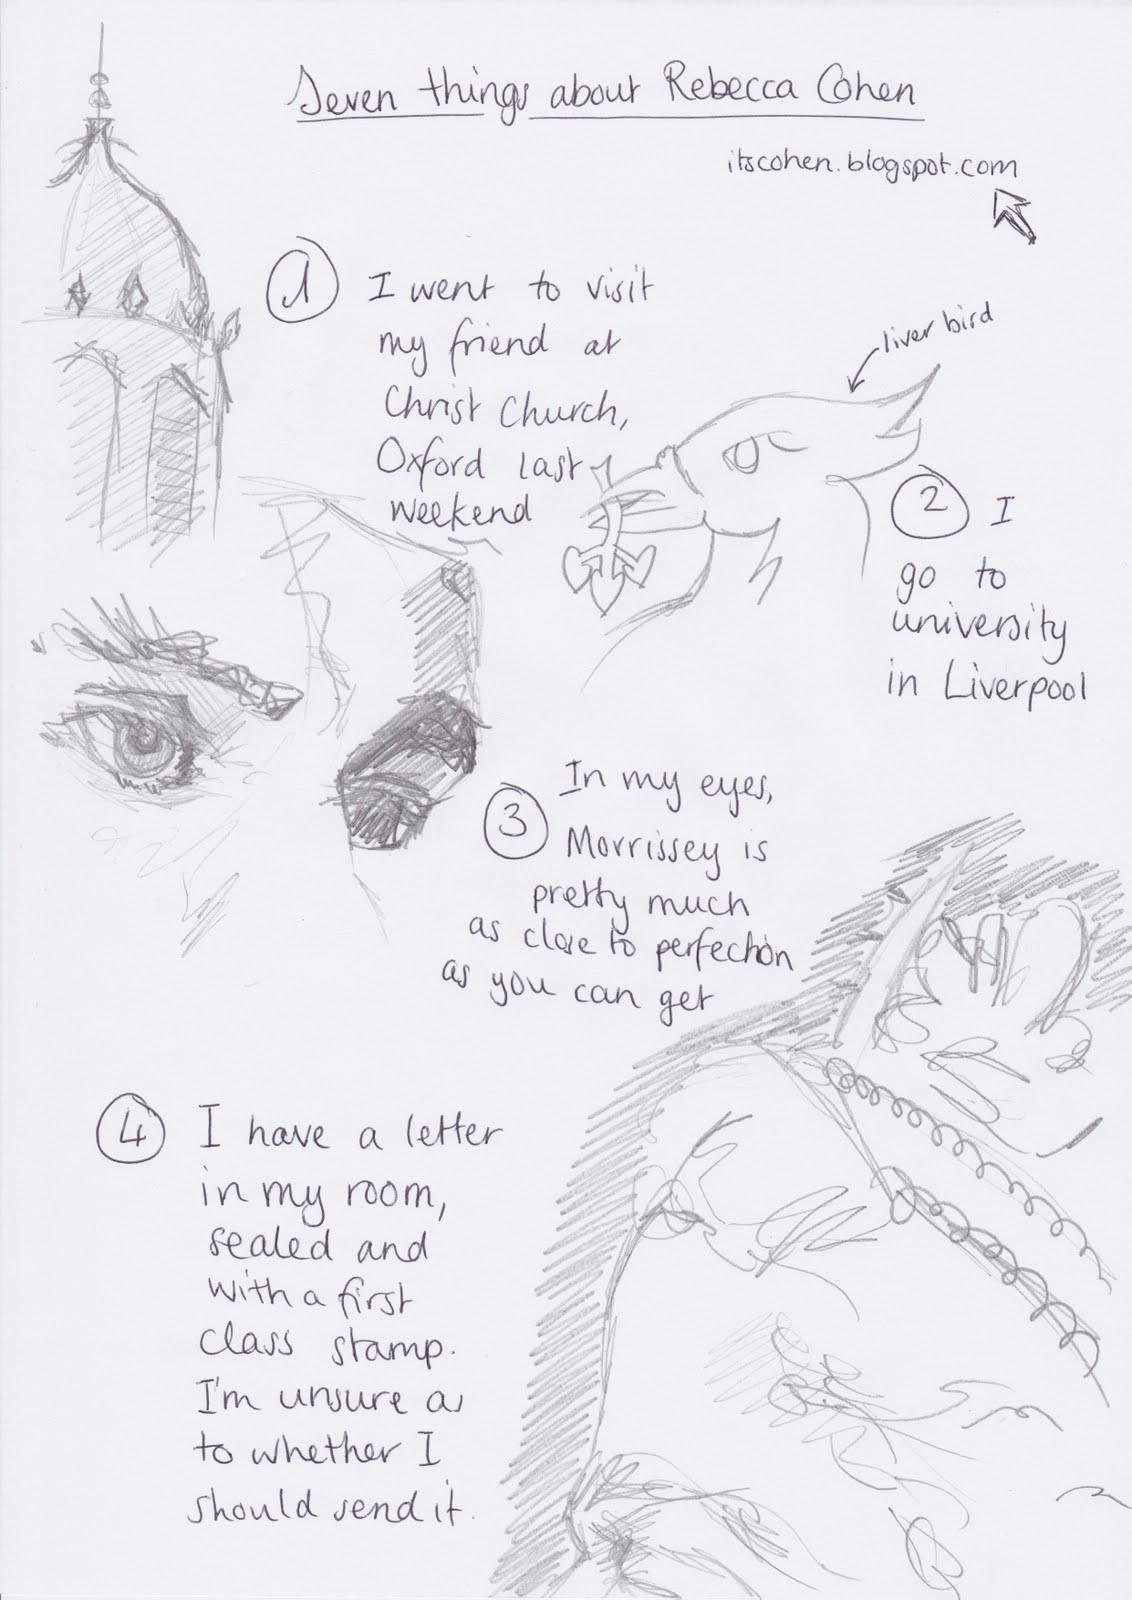 Seven things about Rebecca Cohen
itscohen.blogspot.com
1 I went to visit
my friend at
Christ Church,
Oxford last
weekend
liver bird
2 I
go to
university
in Liverpool
3 In my eyes,
Morrissey is
pretty much
as close to perfection
as you can get
4 I have a letter
in my room,
sealed and
with a first
class stamp.
I'm unsure as
to whether I
should send it.